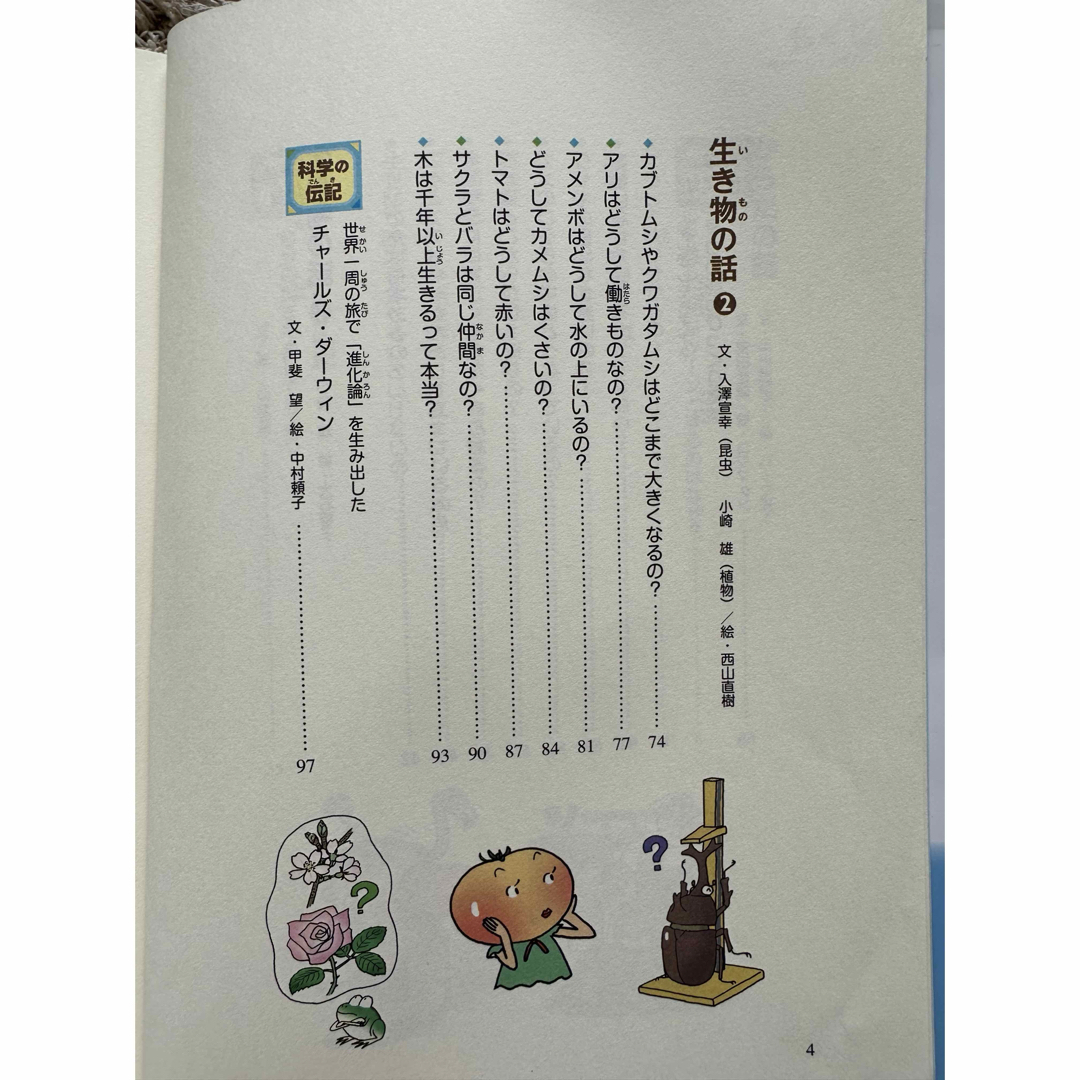 生き物の話 ❷
文・入澤宣幸（昆虫）　小崎　雄（植物）／絵・西山直樹
◆カブトムシやクワガタムシはどこまで大きくなるの？ 74
◆アリはどうして働きものなの？ 77
◆アメンボはどうして水の上にいるの？ 81
◆どうしてカメムシはくさいの？ 84
◆トマトはどうして赤いの？ 87
◆サクラとバラは同じ仲間なの？ 90
◆木は千年以上生きるって本当？ 93
科学の
伝記
世界一周の旅で「進化論」を生み出した
チャールズ・ダーウィン
文・甲斐　望／絵・中村頼子 97
?
?
4